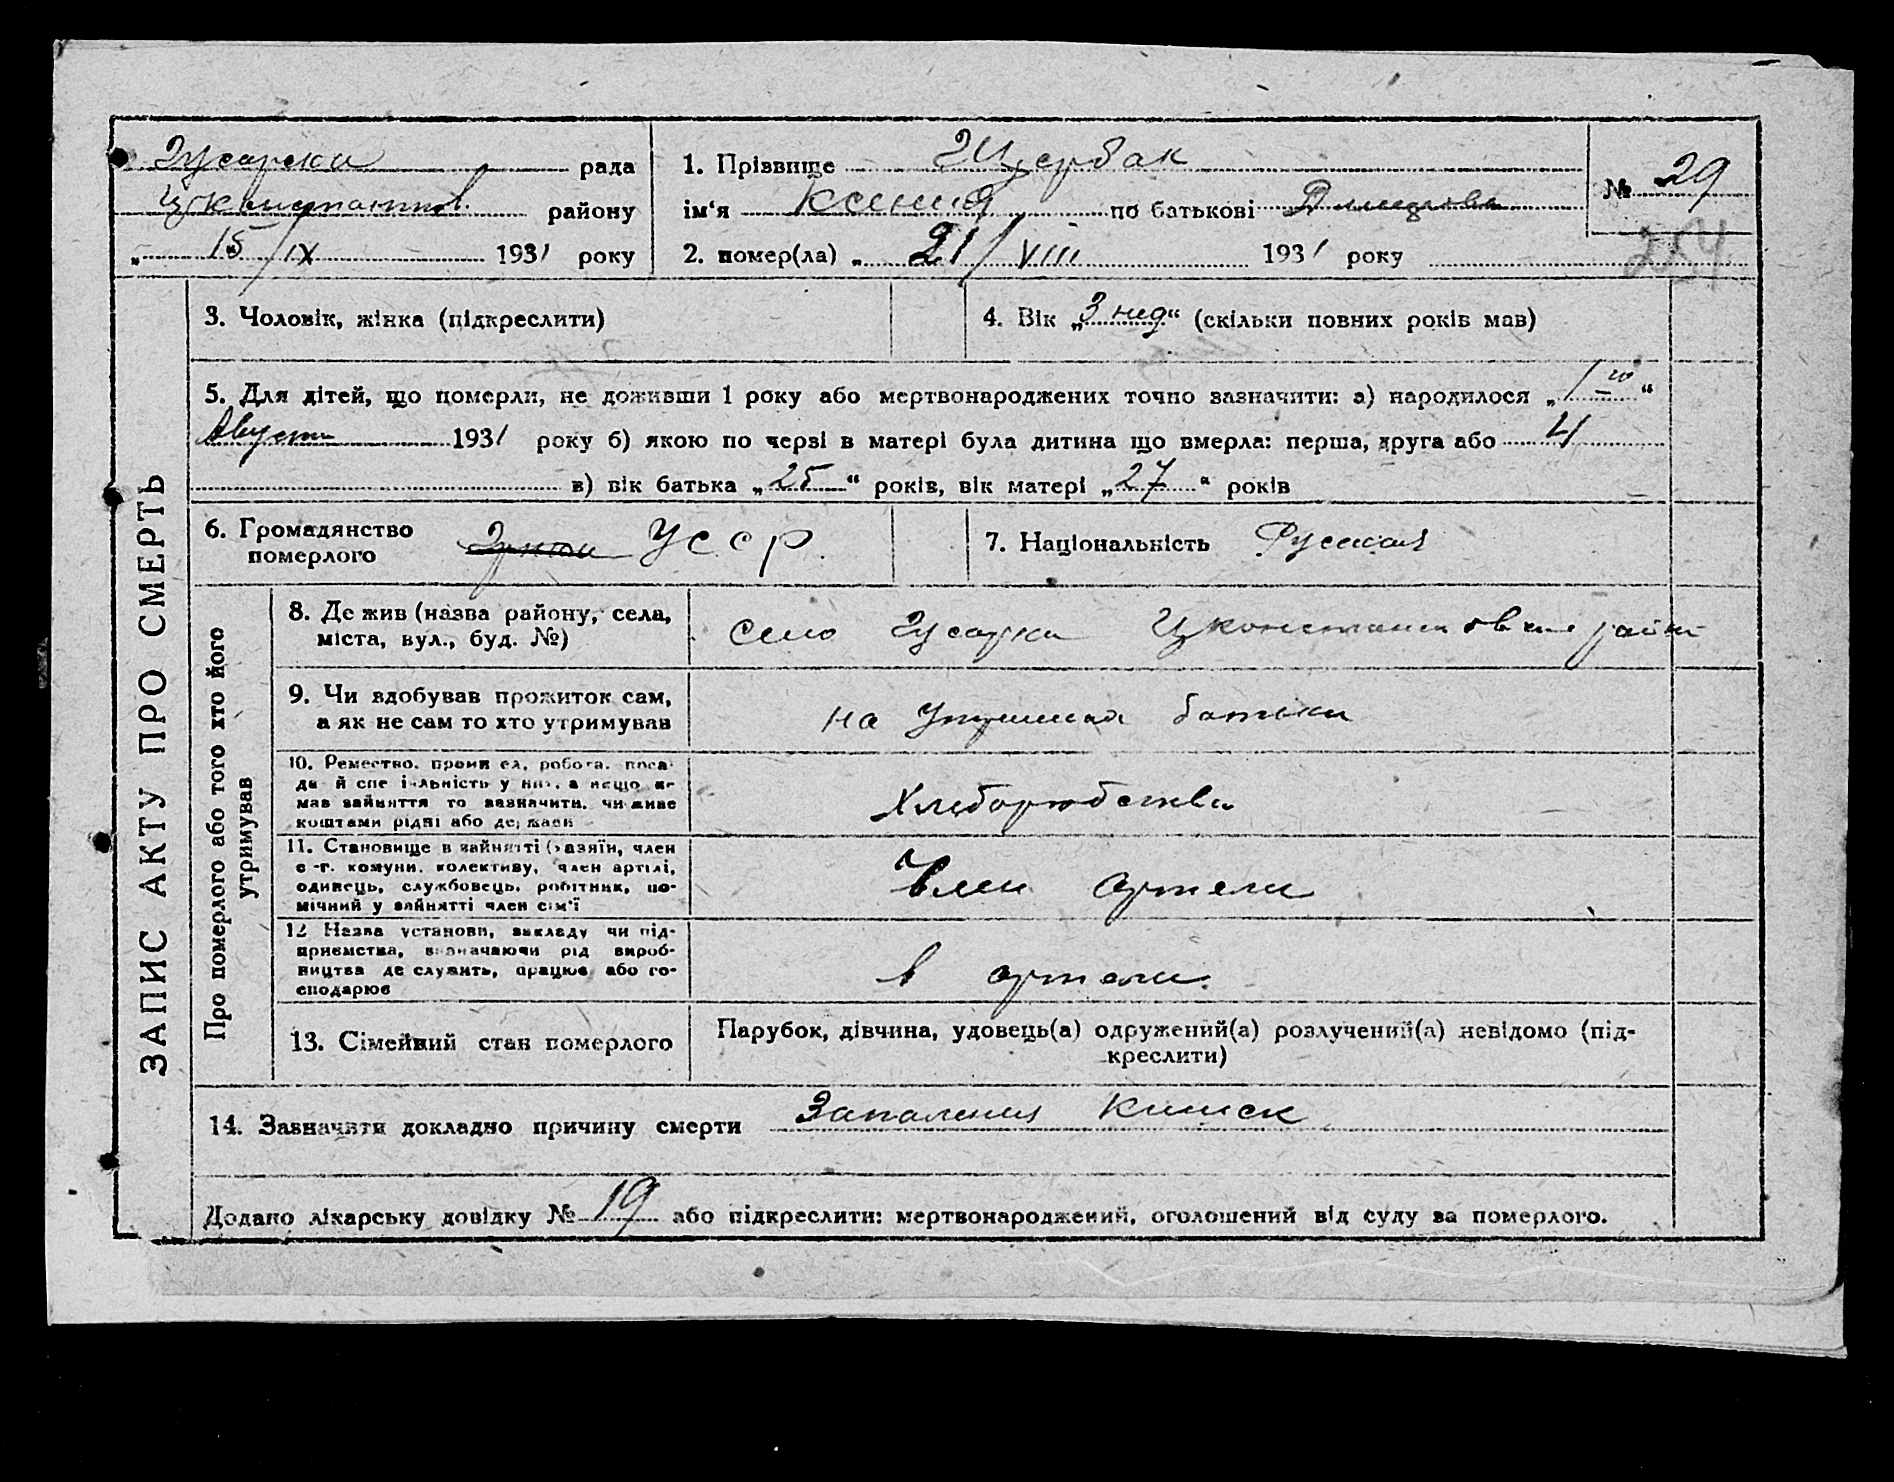 Гусарска рада
Цкнстантнов. району
„ 15/IX 1931 року
1. Прізвище Щербак
ім‘я Ксения по батькові
2. помер(ла) „ 21/VIII 1931 року
№ 29
254
ЗАПИС АКТУ ПРО СМЕРТЬ
3. Чоловік, жінка (підкреслити)
4. Вік „3 нед“ (скільки повних років мав)
5. Для дітей, що померли, не доживши 1 року або мертвонароджених точно зазначити: а) народилося „1го“
Августа 1931 року б) якою по черзі в матері була дитина що вмерла: перша, друга або 4
в) вік батька „25“ років, вік матері „27“ років
6. Громадянство
померлого УССР.
7. Національність Русская
Про померлого або того хто його
утримував
8. Де жив (назва району, села,
міста, вул., буд. №)
Село Гусарка Цконстантиовкие район
9. Чи вдобував прожиток сам,
а як не сам то хто утримував
на батька
10. Ремество, промисел, робота, поса-
да й спеціяльність у них, а якщо не
мав зайняття то зазначити, чи живе
коштами рідні або держави
Хлеборобства
11. Становище в зайнятті (хазяїн, член
с.-г. комуни, колективу, член артілі,
одинець, службовець, робітник, по-
мічний у зайнятті член сім‘ї
Член артели
12 Назва установи, закладу чи під-
приємства, визначаючи рід вироб-
ництва де служить, працює або го-
сподарює
в артели.
13. Сімейний стан померлого
Парубок, дівчина, удовець(а) одружений(а) розлучений(а) невідомо (під-
креслити)
14. Зазначити докладно причину смерти Запаления Кишек
Додано лікарську довідку № 19 або підкреслити: мертвонароджений, оголошений від суду за померлого.